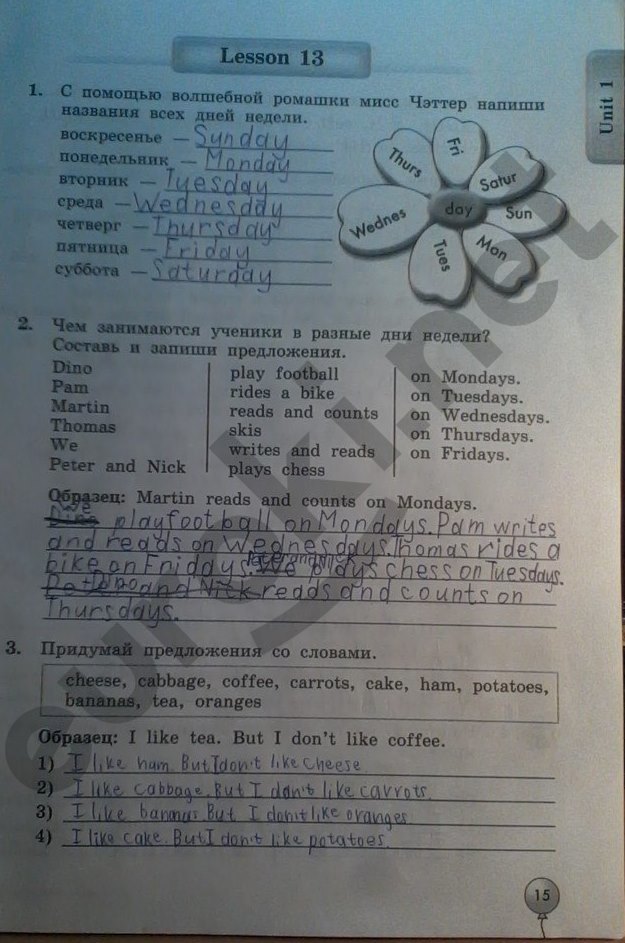 Lesson 13
Unit 1
1. С помощью волшебной ромашки мисс Чэттер напиши
названия всех дней недели.
воскресенье — Sunday
понедельник — Monday
вторник — Tuesday
среда — Wednesday
четверг — Thursday
пятница — Friday
суббота — Saturday
Fri
Thurs
Satur
Wednes
day
Sun
Mon
Tues
2. Чем занимаются ученики в разные дни недели?
Составь и запиши предложения.
Dino play football on Mondays.
Pam rides a bike on Tuesdays.
Martin reads and counts on Wednesdays.
Thomas skis on Thursdays.
We writes and reads on Fridays.
Peter and Nick plays chess
Образец: Martin reads and counts on Mondays.
We
Dino play football on Mondays. Pam writes
and reads on Wednesdays. Thomas rides a
Peter and Nick
bike on Fridays. We plays chess on Tuesdays.
Dino
Peter and Nick reads and counts on
Thursdays.
3. Придумай предложения со словами.
cheese, cabbage, coffee, carrots, cake, ham, potatoes,
bananas, tea, oranges
Образец: I like tea. But I don't like coffee.
1) I like ham. But I don't like cheese
2) I like cabbage. But I don't like carrots.
3) I like bananas. But I don't like oranges
4) I like cake. But I don't like potatoes.
15
euroki.net